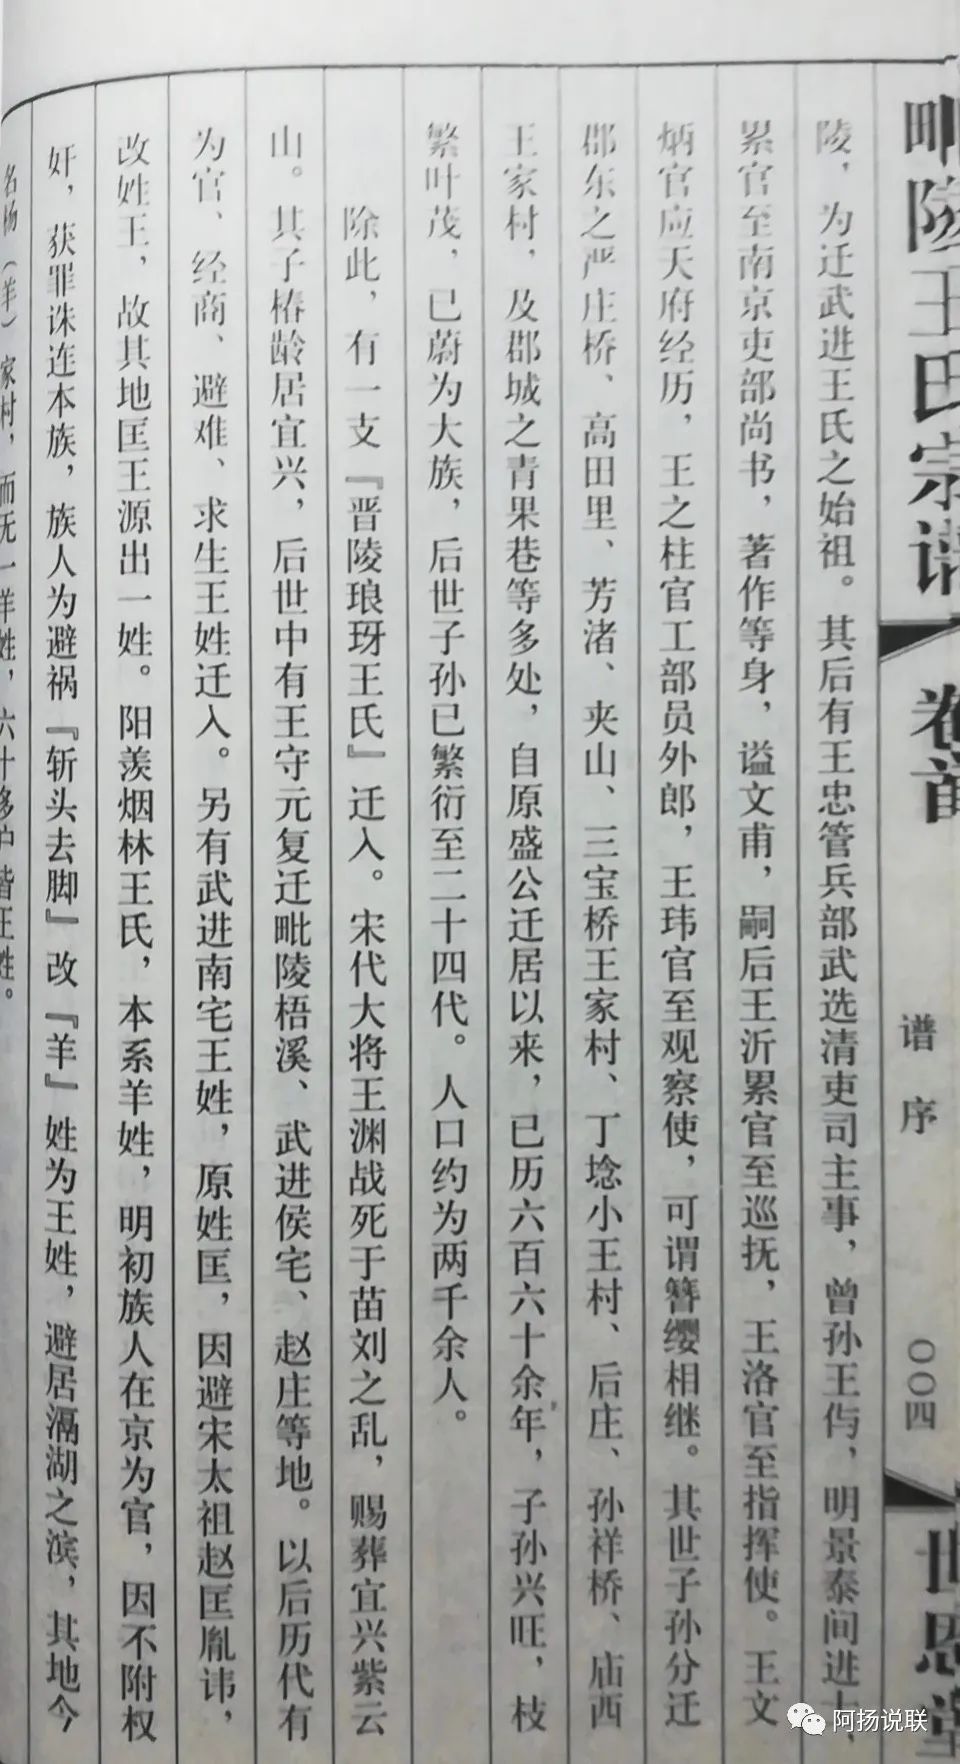 毗陵王氏宗谱
卷首
谱序
〇〇四
世恩堂
陵，为迁武进王氏之始祖。其后有王忠管兵部武选清吏司主事，曾孙王㒜，明景泰间进士，
累官至南京吏部尚书，著作等身，谥文甫，嗣后王沂累官至巡抚，王洛官至指挥使。王文
炳官应天府经历，王之柱官工部员外郎，王玮官至观察使，可谓簪缨相继。其世子孙分迁
郡东之严庄桥、高田里、芳渚、夹山、三宝桥王家村、丁埝小王村、后庄、孙祥桥、庙西
王家村，及郡城之青果巷等多处，自原盛公迁居以来，已历六百六十余年，子孙兴旺，枝
繁叶茂，已蔚为大族，后世子孙已繁衍至二十四代。人口约为两千余人。
除此，有一支『晋陵琅玡王氏』迁入。宋代大将王渊战死于苗刘之乱，赐葬宜兴紫云
山。其子椿龄居宜兴，后世中有王守元复迁毗陵梧溪、武进侯宅、赵庄等地。以后历代有
为官、经商、避难、求生王姓迁入。另有武进南宅王姓，原姓匡，因避宋太祖赵匡胤讳，
改姓王，故其地匡王源出一姓。阳羡烟林王氏，本系羊姓，明初族人在京为官，因不附权
奸，获罪诛连本族，族人为避祸『斩头去脚』改『羊』姓为王姓，避居滆湖之滨，其地今
名杨（羊）家村，而无一羊姓，六十多户皆王姓。
阿扬说联